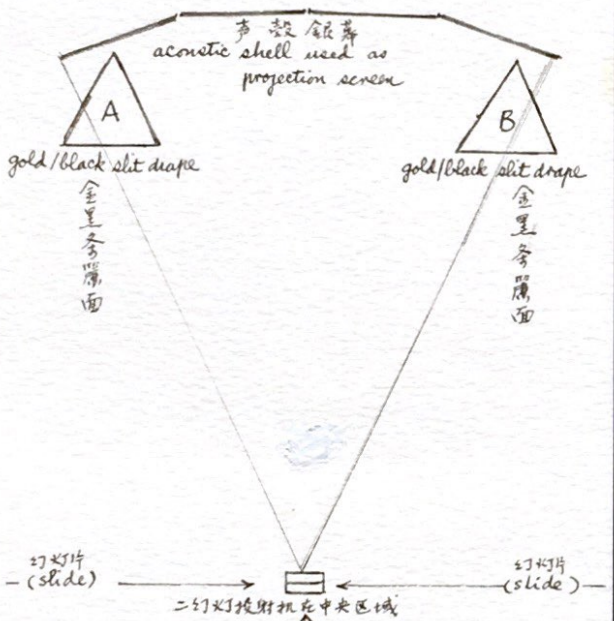 声殼銀幕
aconstic shell used as
projection screen
A
B
gold/black slit drape
gold/black slit drape
金黑条簾面
金黑条簾面
幻灯片
(slide)
幻灯片
(slide)
二幻灯投射机在中央区域